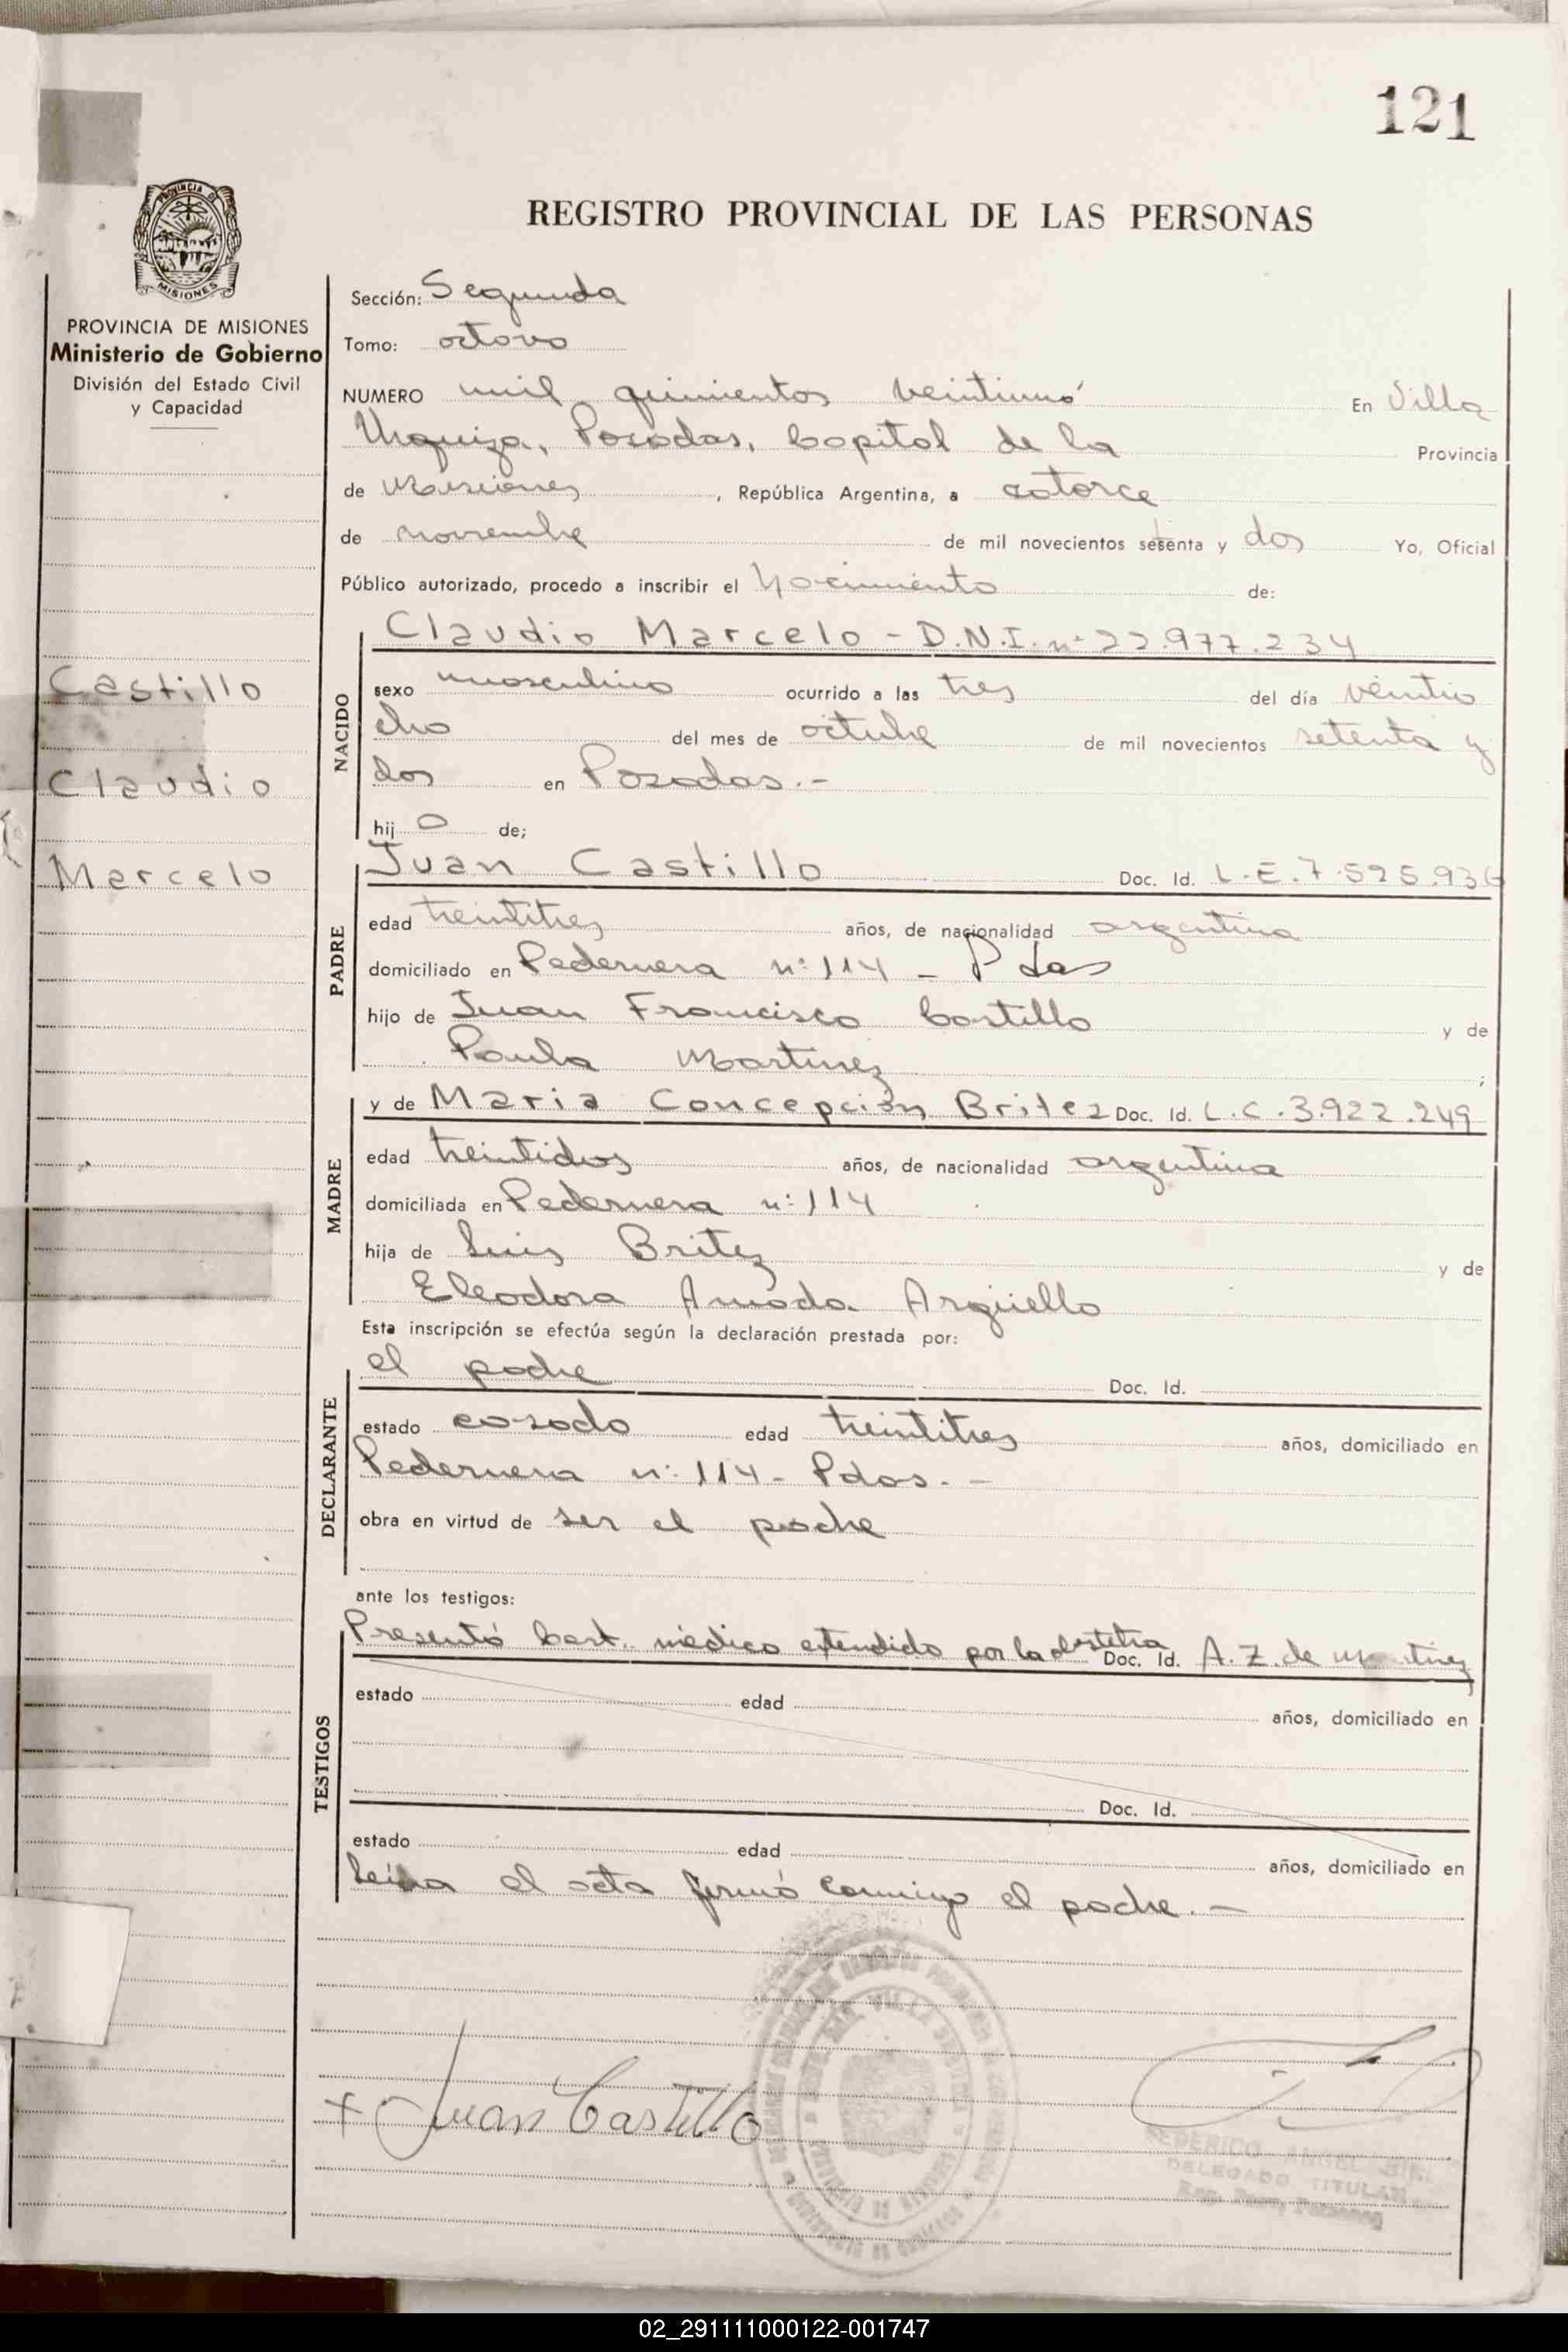 121
REGISTRO PROVINCIAL DE LAS PERSONAS
PROVINCIA DE MISIONES
Ministerio de Gobierno
División del Estado Civil
y Capacidad
Castillo
Claudio
Marcelo
Sección: Segunda
Tomo: octavo
NUMERO mil quinientos veintiuno En Villa
Urquiza, Posadas, Capital de la Provincia
de Misiones, República Argentina, a catorce
de noviembre de mil novecientos setenta y dos Yo, Oficial
Público autorizado, procedo a inscribir el Nacimiento de:
NACIDO
Claudio Marcelo - D.N.I. nº 22.977.234
sexo masculino ocurrido a las tres del día veintio
cho del mes de octubre de mil novecientos setenta y
dos en Posadas.-
hijo de;
PADRE
Juan Castillo Doc. Id. L.E. 7.525.936
edad treintitres años, de nacionalidad argentina
domiciliado en Pedernera nº 114 - Pdas
hijo de Juan Francisco Castillo y de
Paula Martinez ;
MADRE
y de Maria Concepción Britez Doc. Id. L.C. 3.922.249
edad treintidos años, de nacionalidad argentina
domiciliada en Pedernera nº 114
hija de Luis Britez y de
Eleodora Argüello
Esta inscripción se efectúa según la declaración prestada por:
DECLARANTE
el padre Doc. Id.
estado casado edad treintitres años, domiciliado en
Pedernera nº 114 - Pdas. -
obra en virtud de ser el padre
ante los testigos:
TESTIGOS
Presentó Cert. médico extendido por la obstetra Doc. Id. A. Z. de Martinez
estado edad años, domiciliado en
Doc. Id.
estado edad años, domiciliado en
Leida el acta firmó conmigo el padre. -
Juan Castillo
FEDERICO ANGEL
DELEGADO TITULAR
02_291111000122-001747